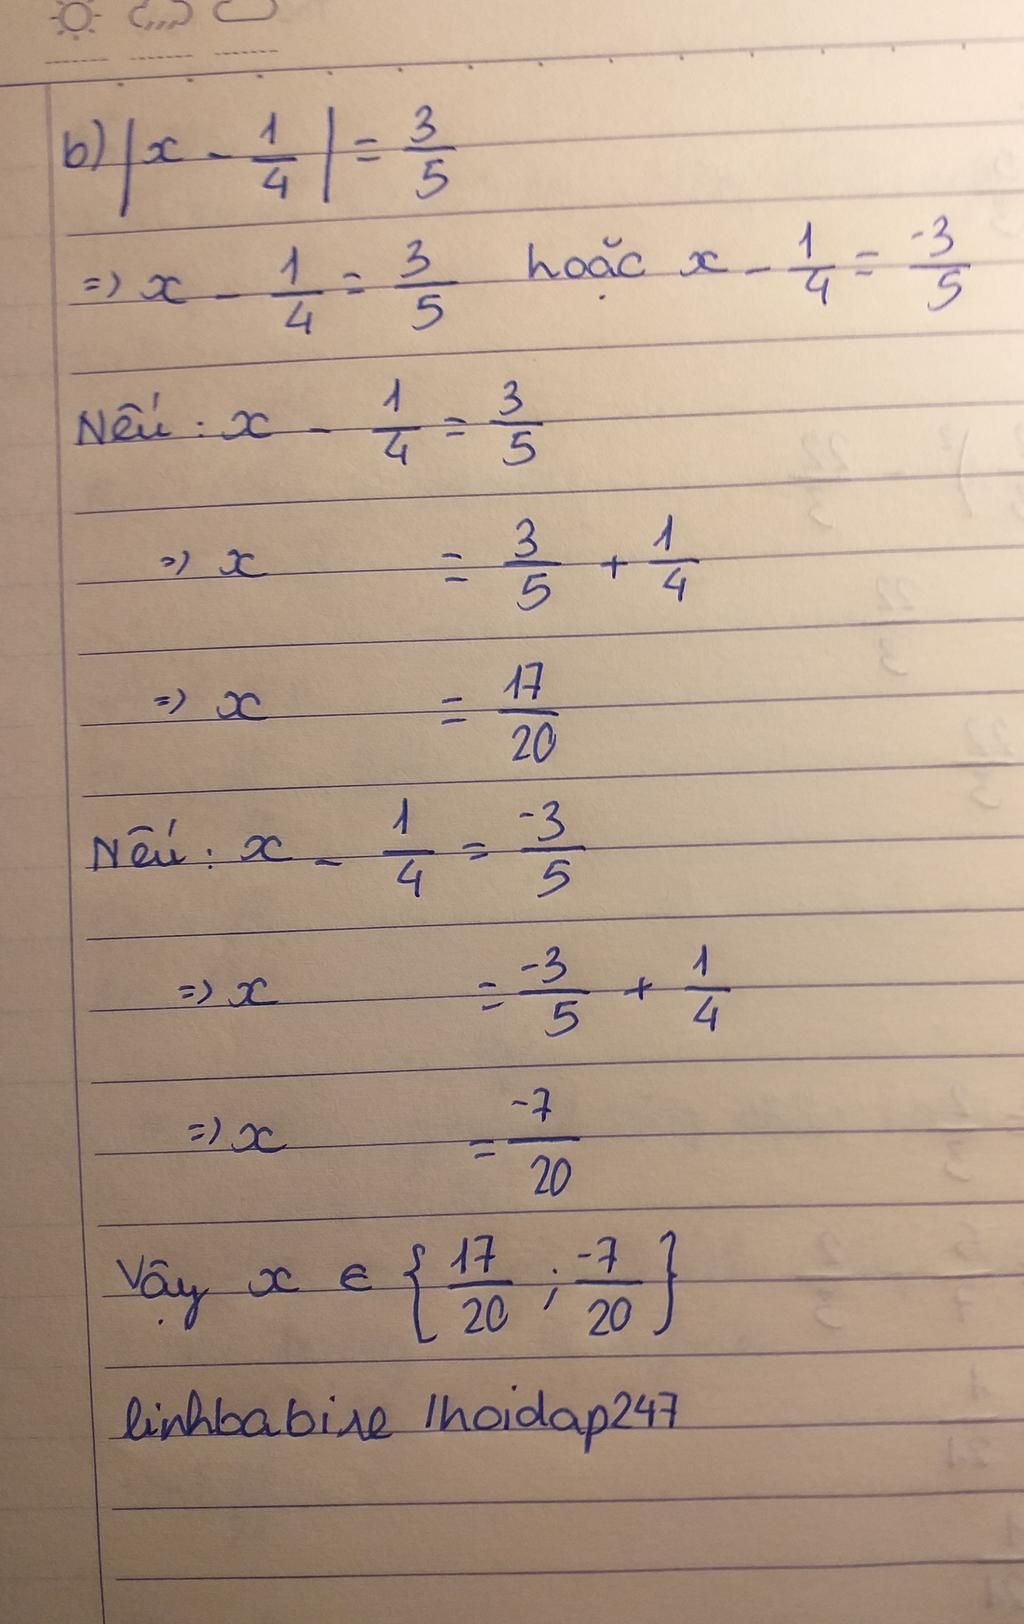 b) |x - 1/4| = 3/5
=> x - 1/4 = 3/5 hoặc x - 1/4 = -3/5
Nếu: x - 1/4 = 3/5
=> x = 3/5 + 1/4
=> x = 17/20
Nếu: x - 1/4 = -3/5
=> x = -3/5 + 1/4
=> x = -7/20
Vậy x ∈ {17/20 ; -7/20}
/hoidap247